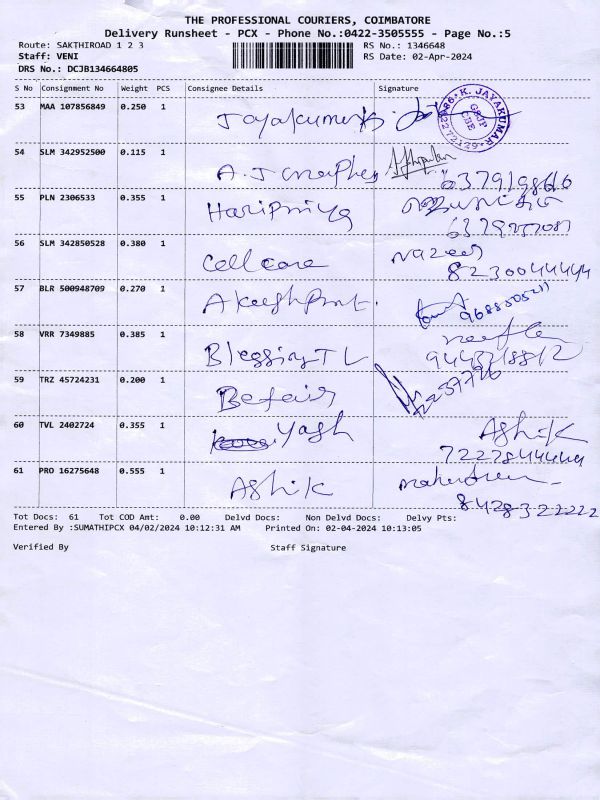 THE PROFESSIONAL COURIERS, COIMBATORE
Delivery Runsheet - PCX - Phone No.:0422-3505555 - Page No.:5
Route: SAKTHIROAD 1 2 3 RS No.: 1346648
Staff: VENI RS Date: 02-Apr-2024
DRS No.: DCJB134664805
S No Consignment No Weight PCS Consignee Details Signature
53 MAA 107856849 0.250 1
Jayakumar
K. JAYAKUMAR
54 SLM 342952500 0.115 1
A.J
55 PLN 2306533 0.355 1
Haripriya
56 SLM 342850528 0.380 1
Cell care Nazeer
8230044444
57 BLR 500948709 0.270 1
Akash Print.
58 VRR 7349885 0.385 1
Blessing TL
59 TRZ 45724231 0.200 1
Befair
60 TVL 2402724 0.355 1
Yash Ashik
61 PRO 16275648 0.555 1
Ashik
8428322222
Tot Docs: 61 Tot COD Amt: 0.00 Delvd Docs: Non Delvd Docs: Delvy Pts:
Entered By :SUMATHIPCX 04/02/2024 10:12:31 AM Printed On: 02-04-2024 10:13:05
Verified By Staff Signature